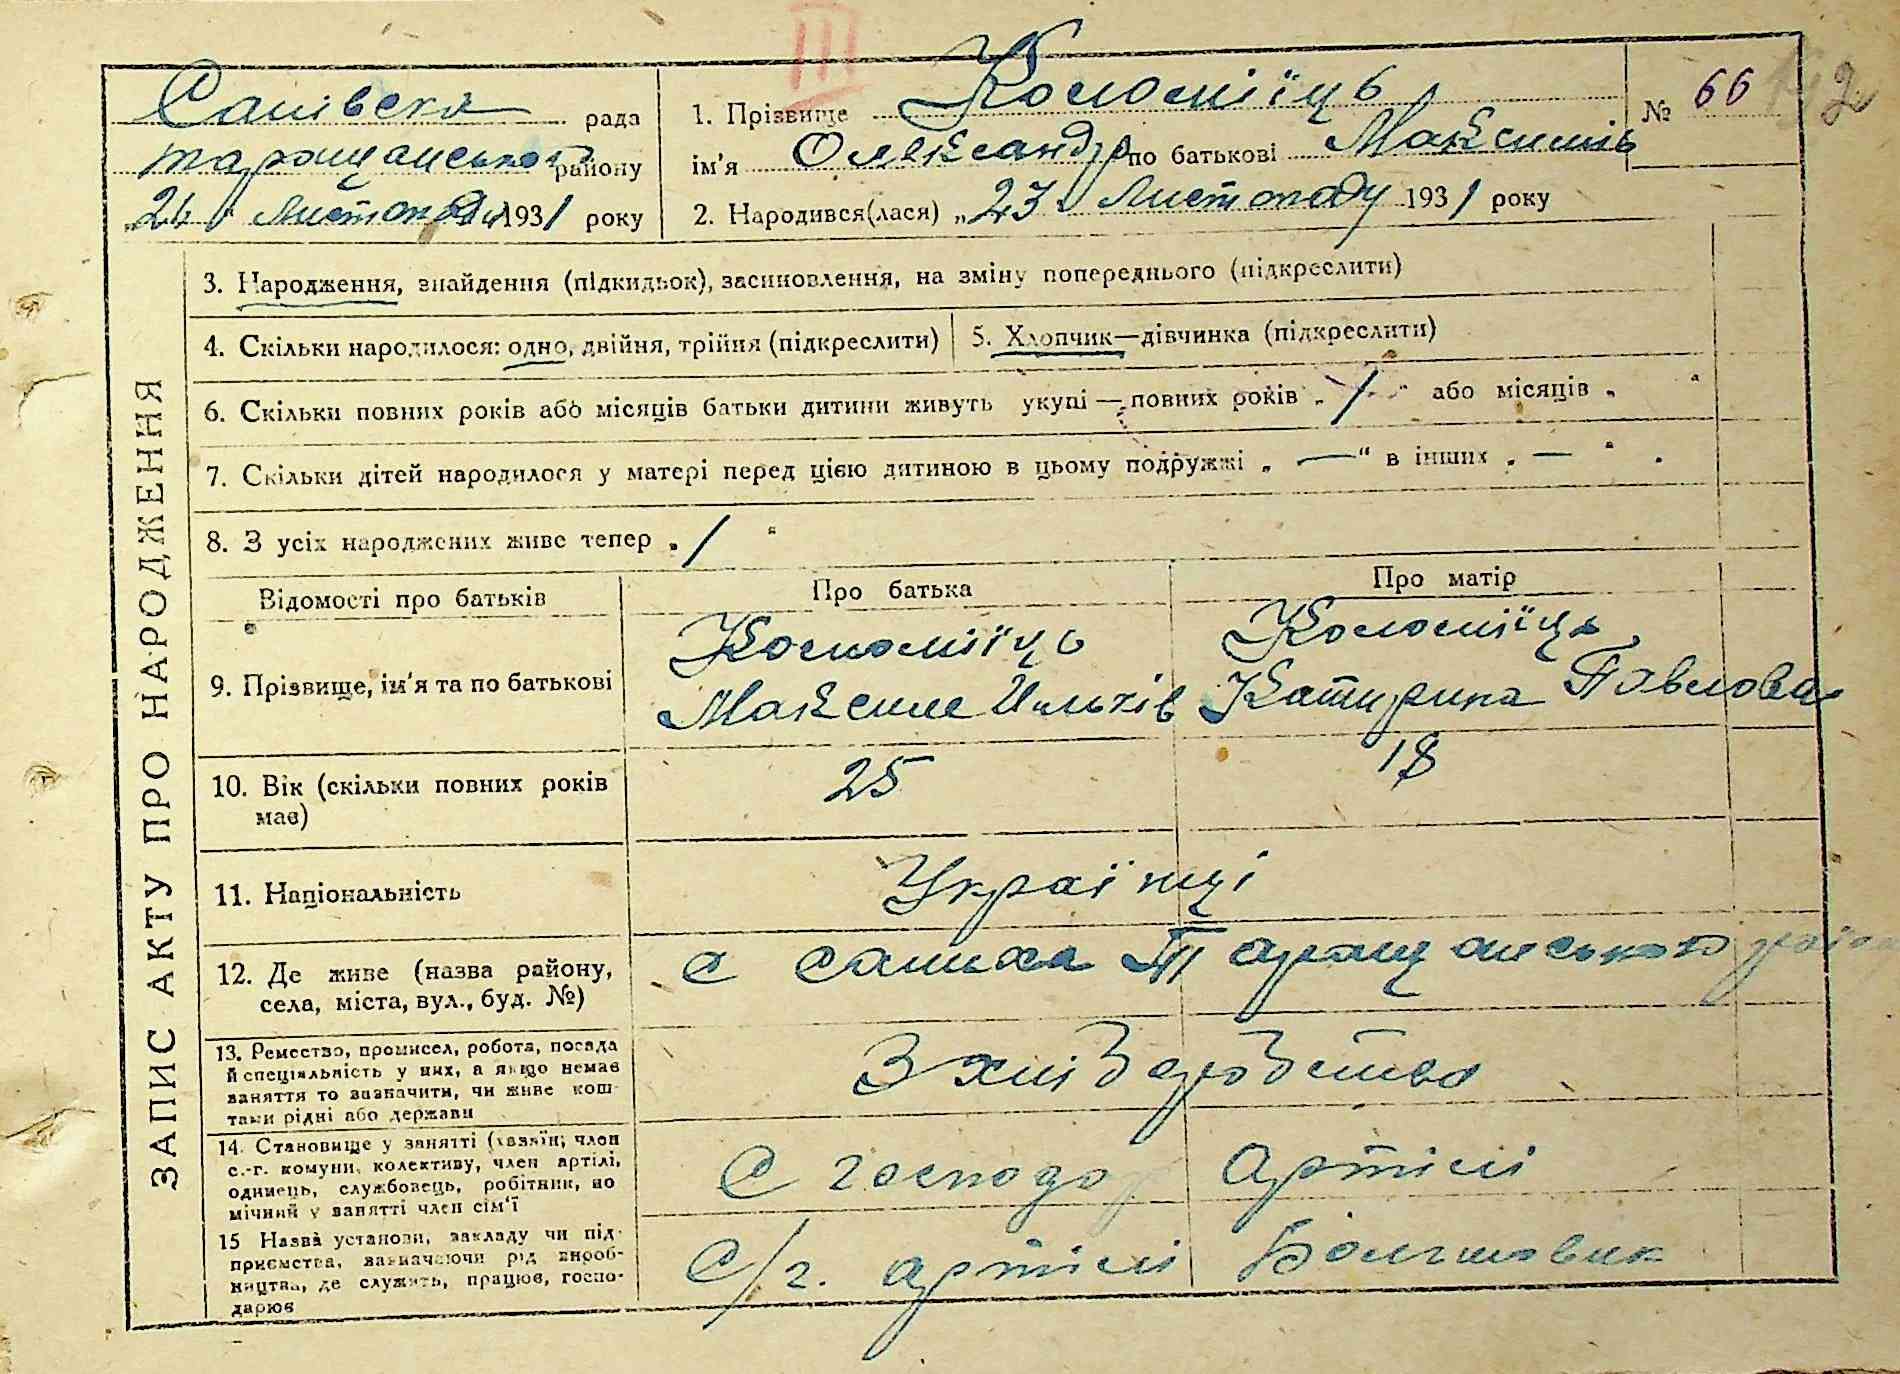 III
Салівська рада
Таращанського району
"24" Листопада 1931 року
1. Прізвище Коломієць
№ 66
ім'я Олександр по батькові Максимів
2. Народився(лася) „23" Листопаду 1931 року
ЗАПИС АКТУ ПРО НАРОДЖЕННЯ
3. Народження, знайдення (підкидьок), засиновлення, на зміну попереднього (підкреслити)
4. Скільки народилося: одно, двійня, трійня (підкреслити) 5. Хлопчик—дівчинка (підкреслити)
6. Скільки повних років або місяців батьки дитини живуть укупі — повних років „1" або місяців „ "
7. Скільки дітей народилося у матері перед цією дитиною в цьому подружжі „—" в інших „—" .
8. З усіх народжених живе тепер „1"
Відомості про батьків Про батька Про матір
9. Прізвище, ім'я та по батькові
Коломіїць Коломіїць
Максим Ільків Катирина Павлова
10. Вік (скільки повних років має) 25 18
11. Національність Українці
12. Де живе (назва району, села, міста, вул., буд. №)
с Салиха Таращанського
13. Ремество, промисел, робота, посада
й спеціяльність у них, а якщо немає
заняття то зазначити, чи живе кош-
тами рідні або держави
З хліборобства
14. Становище у занятті (хазяїн, член
с.-г. комуни, колективу, член артілі,
одинець, службовець, робітник, по
мічний у занятті член сім'ї
С господар артілі
15 Назва установи, закладу чи під-
приємства, зазначаючи рід вироб-
ництва, де служить, працює, госпо-
дарює
С/г. артілі Більшовик